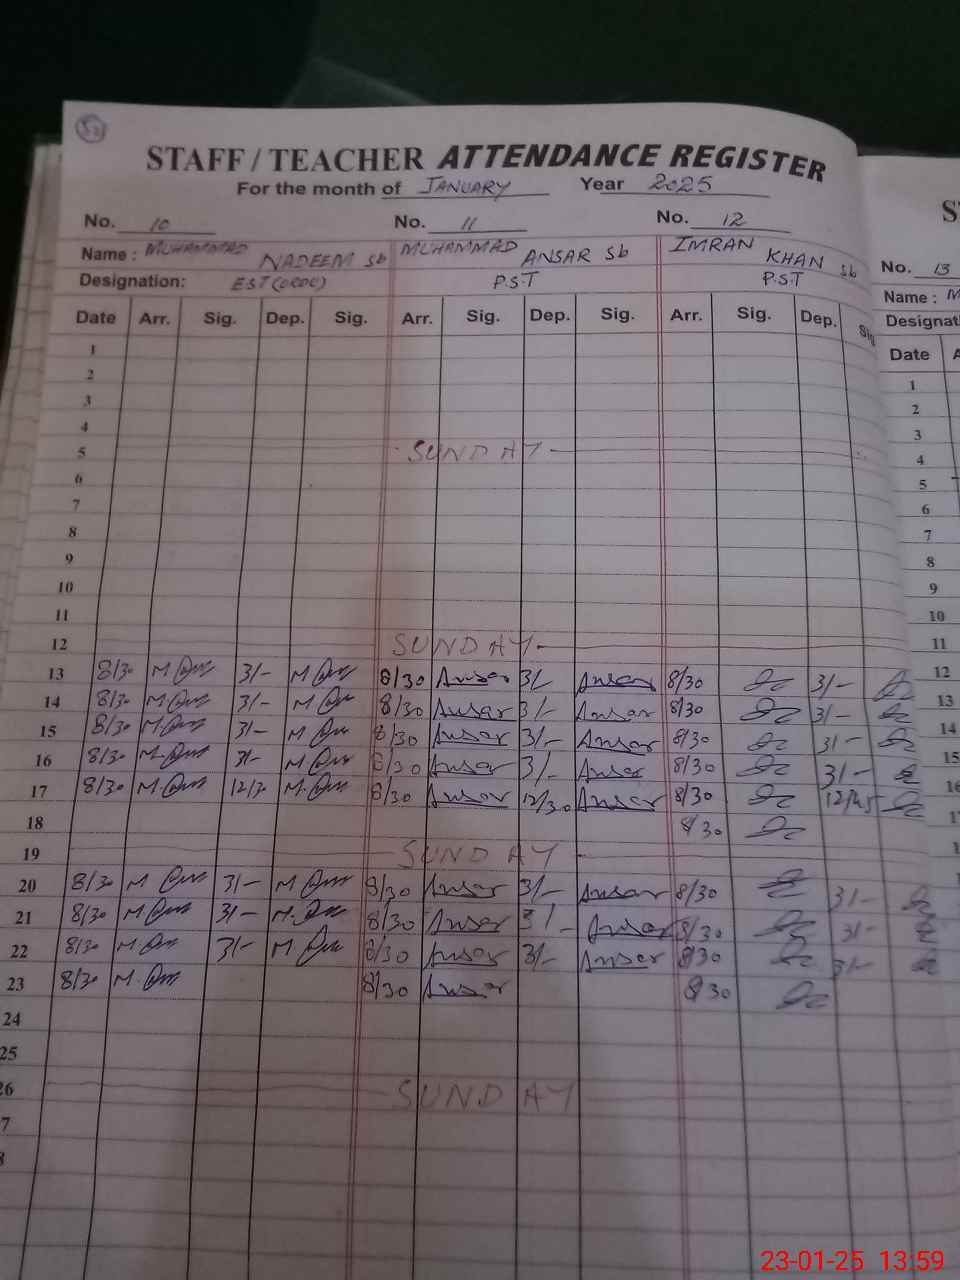 STAFF / TEACHER ATTENDANCE REGISTER
For the month of JANUARY Year 2025
No. 10 No. 11 No. 12
Name : MUHAMMAD NADEEM Sb MUHAMMAD ANSAR Sb IMRAN KHAN Sb
Designation: P.S.T P.S.T
Date Arr. Sig. Dep. Sig. Arr. Sig. Dep. Sig. Arr. Sig. Dep. Sig
1
2
3
4
5 SUNDAY
6
7
8
9
10
11
12 SUNDAY
13 8/30 3/- 8/30 Ansar 3/- Ansar 8/30 3/-
14 8/30 3/- 8/30 Ansar 3/- Ansar 8/30 3/-
15 8/30 3/- 8/30 Ansar 3/- Ansar 8/30 3/-
16 8/30 3/- 8/30 Ansar 3/- Ansar 8/30 3/-
17 8/30 12/30 8/30 Ansar 12/30 Ansar 8/30
18 8/30
19 SUNDAY
20 8/30 3/- 8/30 Ansar 3/- Ansar 8/30 3/-
21 8/30 3/- 8/30 Ansar 3/- Ansar 8/30 3/-
22 8/30 3/- 8/30 Ansar 3/- Ansar 8/30 3/-
23 8/30 8/30 Ansar 8/30
24
25
26 SUNDAY
7
8
No. 13
Name : M
Designat
Date A
1
2
3
4
5
6
7
8
9
10
11
12
13
14
15
16
17
23-01-25 13.59